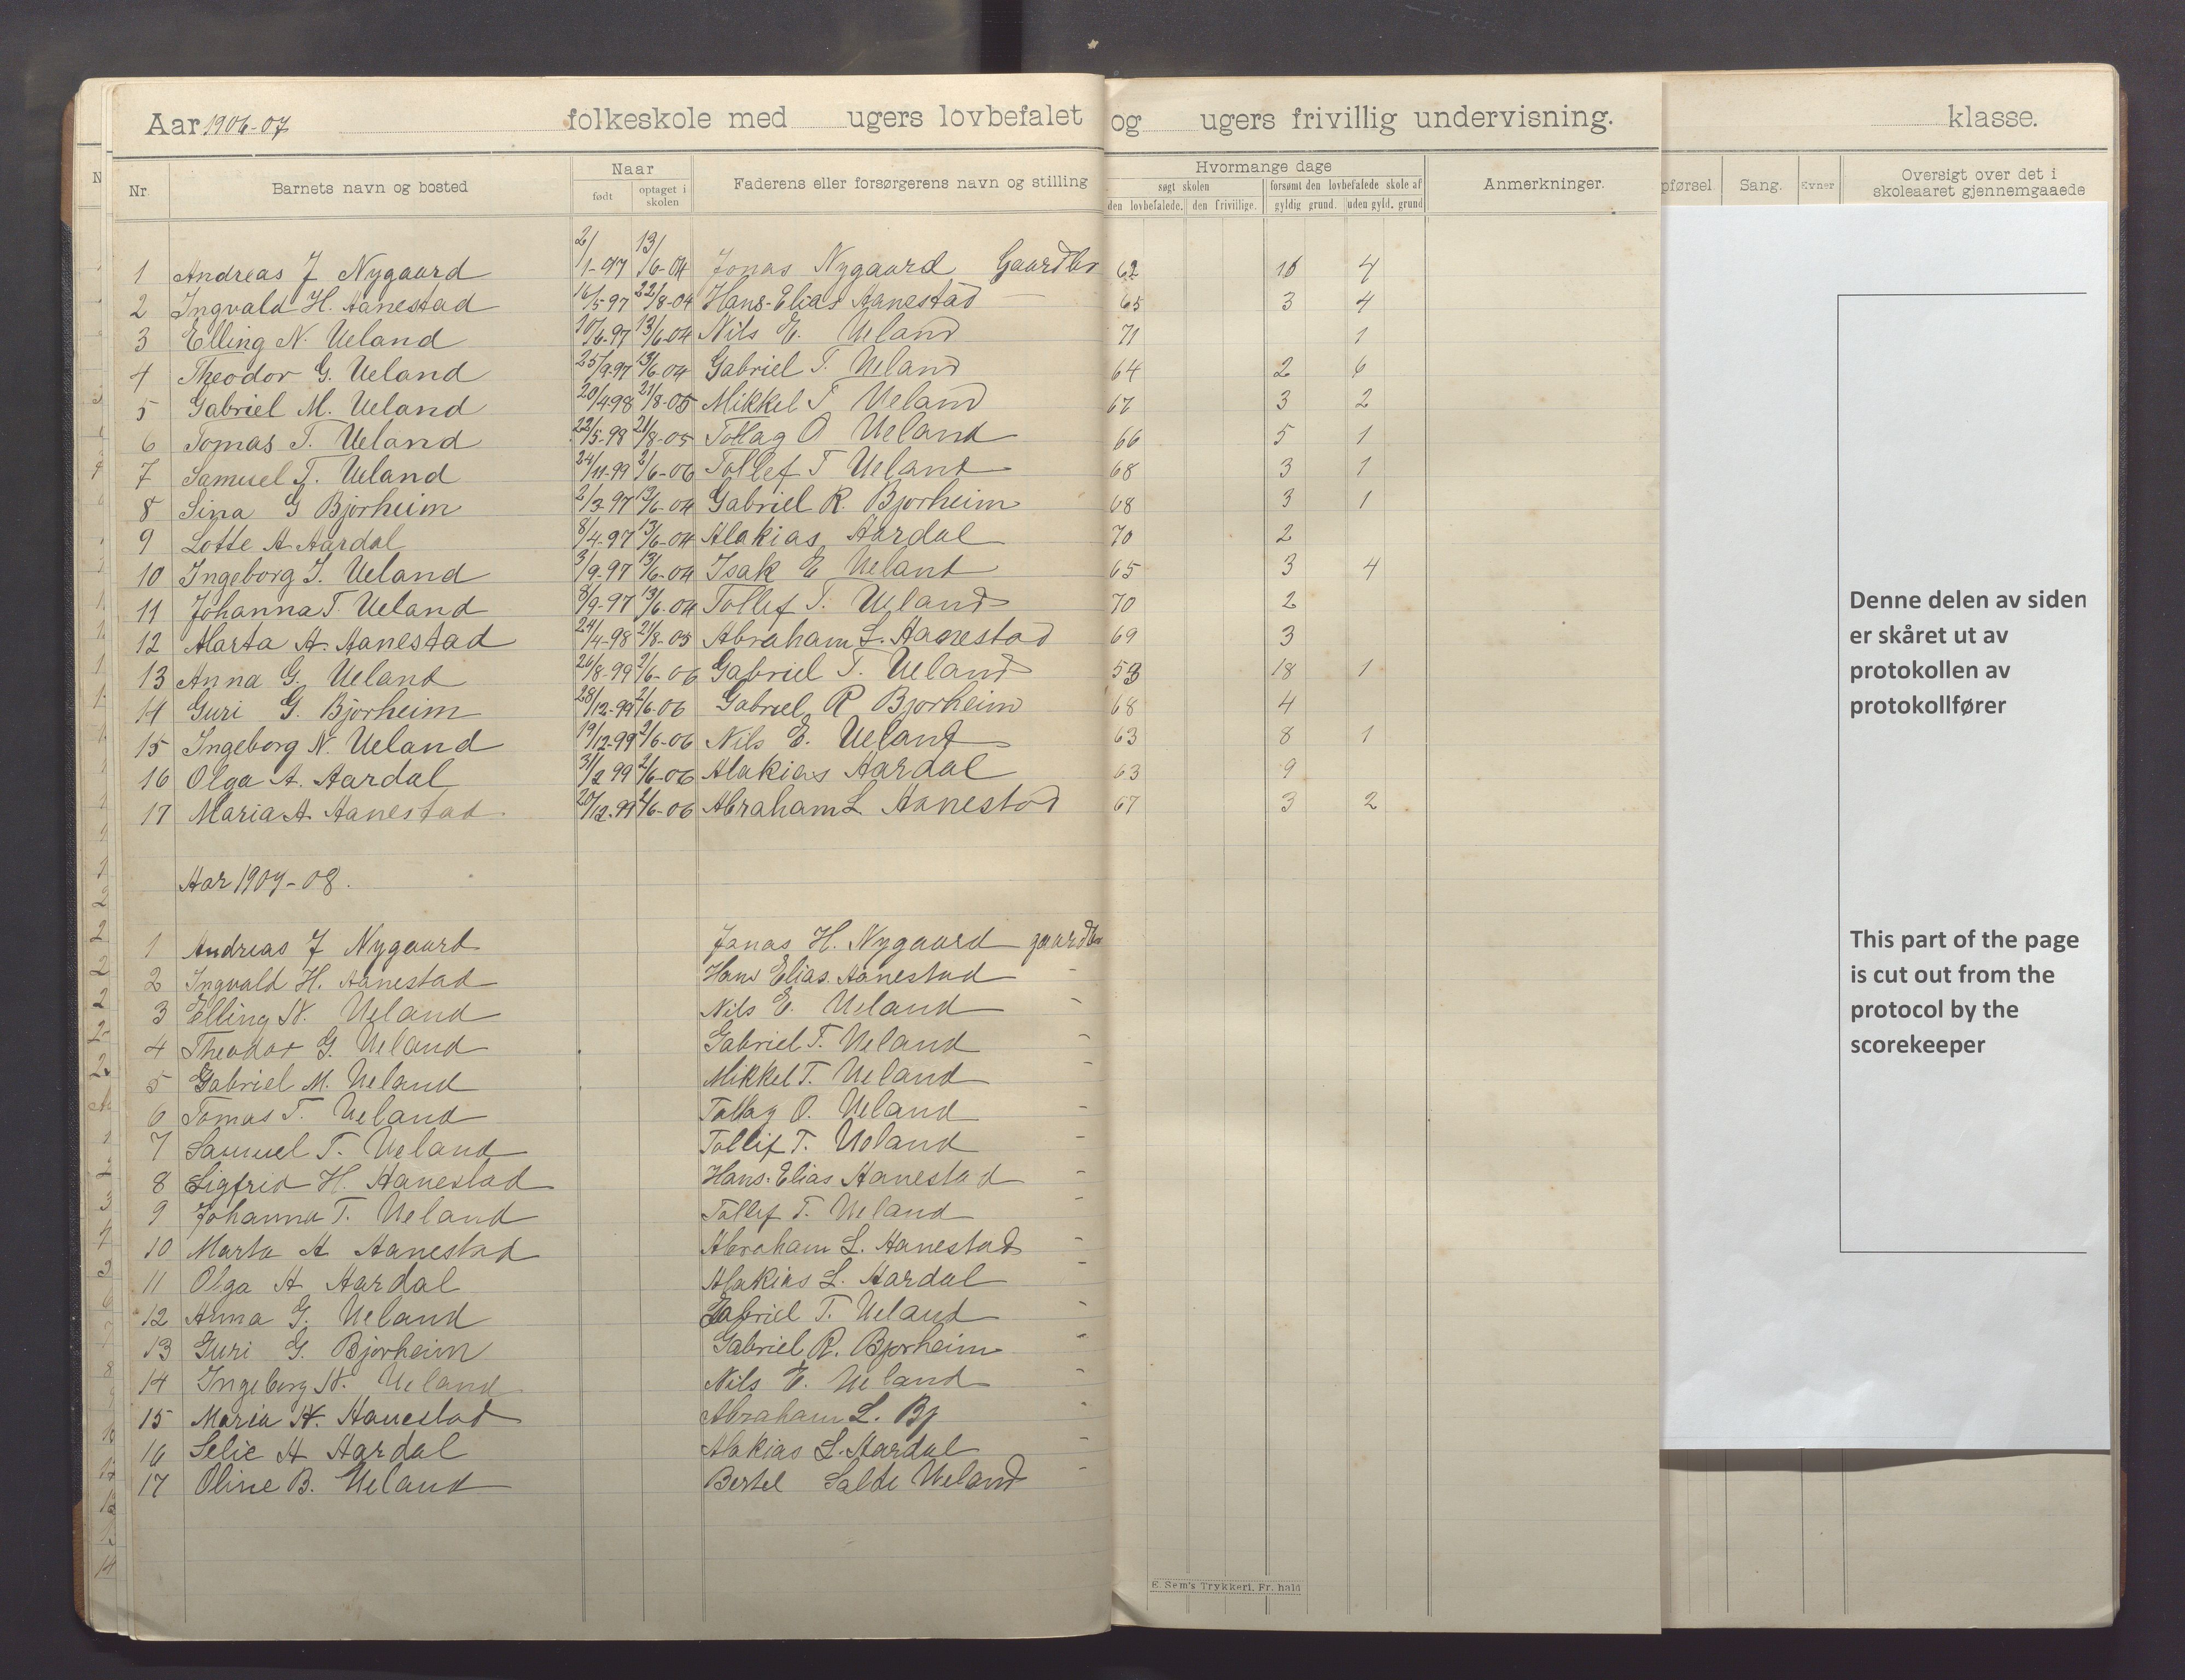 Aar 1906-07 folkeskole med ugers lovbefalet og ugers frivillig undervisning. klasse.
Nr. Barnets navn og bosted Naar født optaget i skolen Faderens eller forsørgerens navn og stilling Hvormange dage søgt skolen den lovbefalede. den frivillige. forsømt den lovbefalede skole af gyldig grund. uden gyld. grund Anmerkninger. pførsel Sang. Evner Oversigt over det i skoleaaret gjennemgaaede
1 Andreas J Nygaard 2/1-97 13/6-04 Jonas Nygaard Gaardbr 62 10 4
2 Ingvald H. Aanestad 16/5-97 22/8-04 Hans-Elias Aanestad — 65 3 4
3 Elling N. Ueland 10/6-97 13/6-04 Nils E. Ueland 71 1
4 Theodor G. Ueland 25/9-97 13/6-04 Gabriel T. Ueland 64 2 6
5 Gabriel M. Ueland 20/4-98 21/8-05 Mikkel T Ueland 67 3 2
6 Tomas T. Ueland 22/5-98 21/8-05 Tollag O Ueland 66 5 1
7 Samuel T. Ueland 24/11-99 2/6-06 Tollef T Ueland 68 3 1
8 Sina G Bjørheim 2/3-97 13/6-04 Gabriel R. Bjørheim 68 3 1
9 Lotte A Aardal 8/4-97 13/6-04 Malakias Aardal 70 2
10 Ingeborg I. Ueland 3/9-97 13/6-04 Isak E Ueland 65 3 4
11 Johanna T. Ueland 8/9-97 13/6-04 Tollef T. Ueland 70 2
12 Marta A. Aanestad 24/4-98 21/8-05 Abraham L. Aanestad 69 3
13 Anna G. Ueland 20/8-99 2/6-06 Gabriel T. Ueland 53 18 1
14 Guri G. Bjørheim 28/12-99 2/6-06 Gabriel R Bjørheim 68 4
15 Ingeborg N. Ueland 19/12-99 2/6-06 Nils E. Ueland 63 8 1
16 Olga A. Aardal 31/12 99 2/6-06 Malakias Aardal 63 9
17 Maria A Aanestad 20/12-99 2/6-06 Abraham L Aanestad 67 3 2
Aar 1907-08.
1 Andreas J Nygaard Jonas H. Nygaard gaardbr
2 Ingvald H. Aanestad Hans Elias Aanestad -
3 Elling N. Ueland Nils E. Ueland -
4 Theodor G. Ueland Gabriel T. Ueland -
5 Gabriel M. Ueland Mikkel T. Ueland -
6 Tomas T. Ueland Tollag O. Ueland -
7 Samuel T. Ueland Tollif T. Ueland -
8 Sigfrid H. Aanestad Hans-Elias Aanestad -
9 Johanna T. Ueland Tollef T. Ueland -
10 Marta A Aanestad Abraham L. Aanestad -
11 Olga A Aardal Malakias L. Aardal -
12 Anna G. Ueland Gabriel T. Ueland -
13 Guri G. Bjørheim Gabriel R. Bjørheim -
14 Ingeborg N. Ueland Nils E. Ueland -
15 Maria A. Aanestad Abraham L. Bj -
16 Selie A Aardal Malakias L. Aardal -
17 Oline B. Ueland Bertel Salte Ueland -
E. Sem's Trykkeri, Fr. hald
Denne delen av siden
er skåret ut av
protokollen av
protokollfører
This part of the page
is cut out from the
protocol by the
scorekeeper